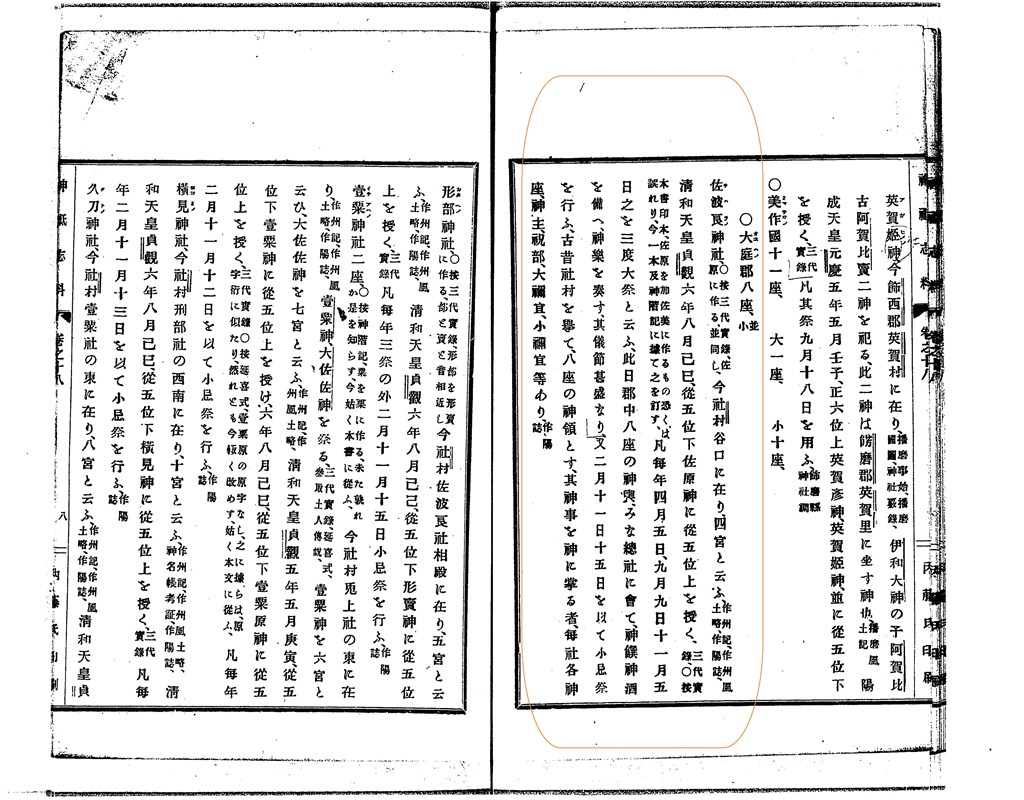 英賀姬神今飾西郡英賀村に在り、播磨事始、播磨國圖神社覈錄、伊和大神の子阿賀比
古阿賀比賣二神を祀る、此二神は餝磨郡英賀里に坐す神也、播磨風土記陽
成天皇元慶五年五月壬子、正六位上英賀彥神、英賀姬神、並に從五位下
を授く、三代實錄凡其祭九月十八日を用ふ、飾磨縣神社調
〇美作國十一座、大一座、小十座、
〇大庭郡八座、並小
佐波良神社、〇按三代實錄、佐原に作る並同し、今社村谷口に在り、四宮と云ふ、作州記、作州風土略、作陽誌、
淸和天皇貞觀六年八月己巳、從五位下佐原神に從五位上を授く、三代實錄〇按
木書印本佐原を加佐美に作るもの恐くは誤れり、今一本及神階記に據て之を訂す、凡每年四月五日、九月九日十一月五
日之を三度大祭と云ふ、此日郡中八座の神輿みな總社に會て、神饌神酒
を備へ、神樂を奏す、其儀節甚盛なり、又二月十一日十五日を以て小忌祭
を行ふ、古昔社村を擧て、八座の神領とす、其神事を神に掌る者、每社各神
座、神主、祝部大禰宜、小禰宜等あり、作陽誌
形部神社、〇按三代實錄、形部を形賣に作る、部と賣と音相近し今社村佐波良社相殿に在り、五宮と云
ふ、作州記、作州風土略、作陽誌、淸和天皇貞觀六年八月己巳、從五位下形賣神に從五位
上を授く、三代實錄凡每年三祭の外二月十一月十五日小忌祭を行ふ、作陽誌
壹粟神社二座、〇按神階記粟を栗に作る、未た孰れか是を知らす、今姑く本書に從ふ、今社村兎上社の東に在
り、作州記、作州風土略、作陽誌、壹粟神、大佐佐神を祭る、三代實錄、延喜式、參取土人傳說、壹粟神を六宮と
云ひ、大佐佐神を七宮と云ふ、作州記、作州風土略、淸和天皇貞觀五年五月庚寅、從五
位下壹粟神に從五位上を授け、六年八月己巳、從五位下壹粟原神に從五
位上を授く、三代實錄〇按延喜式、壹粟原の原字なし、之に據らは、原字衍に似たり然れとも今輙く改めす、姑く本文に從ふ、凡每年
二月十一月十二日を以て小忌祭を行ふ、作陽誌
橫見神社、今社村刑部社の西南に在り、十宮と云ふ、作州記、作州風土略、神名帳考証、作陽誌、淸
和天皇貞觀六年八月己巳、從五位下橫見神に從五位上を授く、三代實錄凡每
年二月十一月十三日を以て小忌祭を行ふ、作陽誌
久刀神社、今社村壹粟社の東に在り、八宮と云ふ、作州記、作州風土略、作陽誌、淸和天皇貞
神祇志料 卷之十八
八